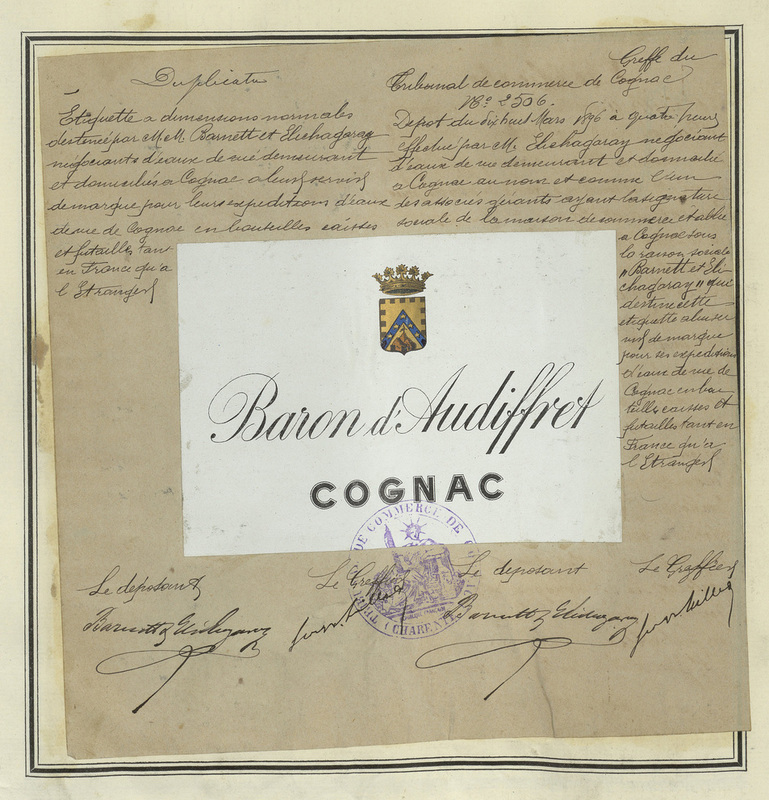 Duplicata
Etiquette a dimensions normales
destinée par M.M. Barnett et Elichagaray
négociants d'eaux de vie demeurant
et domiciliés a Cognac a leur servir
de marque pour leurs expéditions d'eaux
de vie de Cognac en bouteilles caisses
et futailles tant
en France qu'a
l'Etranger
Greffe du
Tribunal de commerce de Cognac
No. 2506.
Dépot du dix huit Mars 1896 à quatre heures
effectué par M. Elichagaray négociant
d'eaux de vie demeurant et domicilié
a Cognac au nom et comme l'un
des associés gérants ayant la signature
sociale de la maison de commerce établie
a Cognac sous
la raison sociale
"Barnett et Eli-
chagaray" que
destine cette
etiquette a leur ser
vir de marque
pour ses expéditions
d'eaux de vie de
Cognac en bou
teilles caisses et
futailles tant en
France qu'a
l'Etranger
Baron d'Audiffret
COGNAC
TRIBUNAL DE COMMERCE DE COGNAC
(CHARENTE)
Le déposant
Le Greffier
Le déposant
Le Greffier
Barnett & Elichagaray
Barnett & Elichagaray